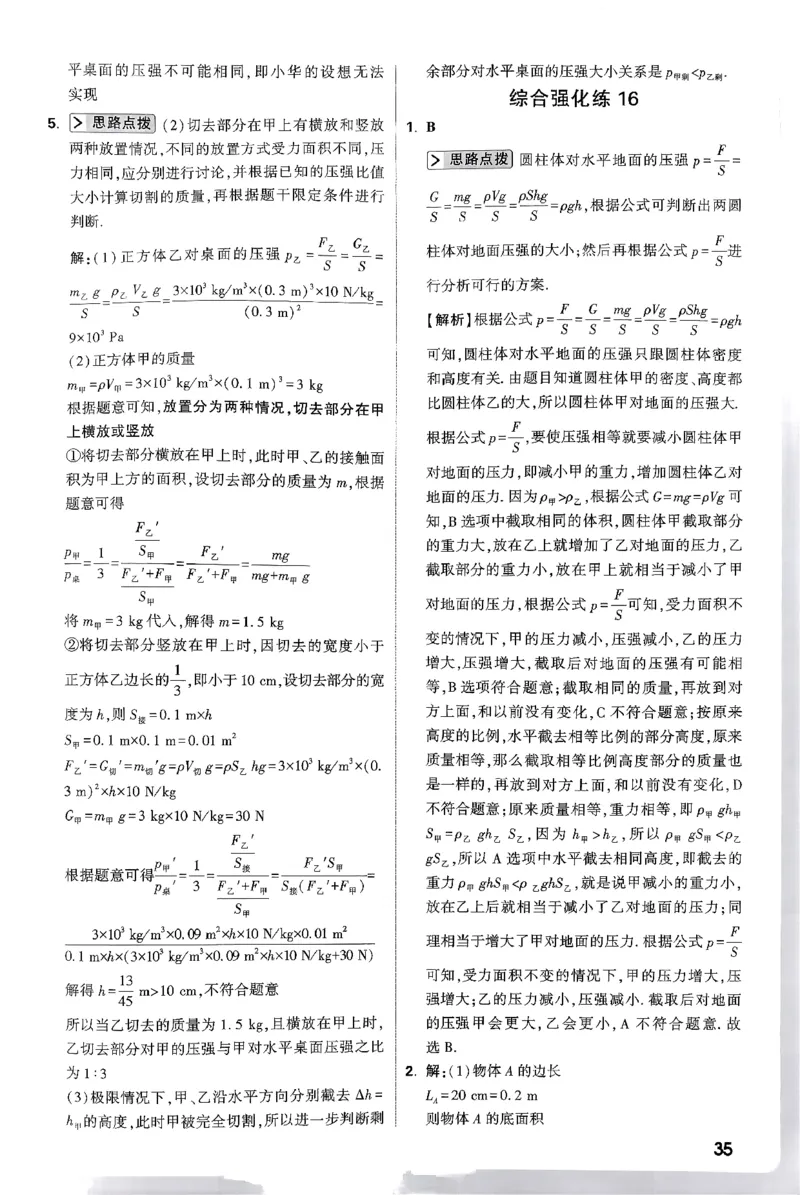 平桌面的压强不可能相同,即小华的设想无法
实现
5. > 思路点拨 (2)切去部分在甲上有横放和竖放
两种放置情况,不同的放置方式受力面积不同,压
力相同,应分别进行讨论,并根据已知的压强比值
大小计算切割的质量,再根据题干限定条件进行
判断.
解:(1)正方体乙对桌面的压强 p乙=F乙/S=G乙/S=
m乙g/S=ρ乙V乙g/S=3×10³ kg/m³×(0.3 m)³×10 N/kg/(0.3 m)²=
9×10³ Pa
(2)正方体甲的质量
m甲=ρV甲=3×10³ kg/m³×(0.1 m)³=3 kg
根据题意可知,放置分为两种情况,切去部分在甲
上横放或竖放
①将切去部分横放在甲上时,此时甲、乙的接触面
积为甲上方的面积,设切去部分的质量为 m,根据
题意可得
p甲/p桌=1/3=(F乙′/S甲)/((F乙′+F甲)/S甲)=F乙′/(F乙′+F甲)=mg/(mg+m甲g)
将 m甲=3 kg代入,解得 m=1.5 kg
②将切去部分竖放在甲上时,因切去的宽度小于
正方体乙边长的1/3,即小于 10 cm,设切去部分的宽
度为 h,则 S接=0.1 m×h
S甲=0.1 m×0.1 m=0.01 m²
F乙′=G切′=m切′g=ρV切g=ρS乙hg=3×10³ kg/m³×(0.
3 m)²×h×10 N/kg
G甲=m甲g=3 kg×10 N/kg=30 N
根据题意可得p甲′/p桌′=1/3=(F乙′/S接)/((F乙′+F甲)/S甲)=F乙′S甲/(S接(F乙′+F甲))=
3×10³ kg/m³×0.09 m²×h×10 N/kg×0.01 m²/(0.1 m×h×(3×10³ kg/m³×0.09 m²×h×10 N/kg+30 N))
解得 h=13/45 m>10 cm,不符合题意
所以当乙切去的质量为 1.5 kg,且横放在甲上时,
乙切去部分对甲的压强与甲对水平桌面压强之比
为 1∶3
(3)极限情况下,甲、乙沿水平方向分别截去 Δh=
h甲的高度,此时甲被完全切割,所以进一步判断剩
余部分对水平桌面的压强大小关系是 p甲剩<p乙剩.
综合强化练 16
1. B
> 思路点拨 圆柱体对水平地面的压强 p=F/S=
G/S=mg/S=ρVg/S=ρShg/S=ρgh,根据公式可判断出两圆
柱体对地面压强的大小;然后再根据公式 p=F/S进
行分析可行的方案.
【解析】根据公式 p=F/S=G/S=mg/S=ρVg/S=ρShg/S=ρgh
可知,圆柱体对水平地面的压强只跟圆柱体密度
和高度有关.由题目知道圆柱体甲的密度、高度都
比圆柱体乙的大,所以圆柱体甲对地面的压强大.
根据公式 p=F/S,要使压强相等就要减小圆柱体甲
对地面的压力,即减小甲的重力,增加圆柱体乙对
地面的压力.因为ρ甲>ρ乙,根据公式 G=mg=ρVg 可
知,B 选项中截取相同的体积,圆柱体甲截取部分
的重力大,放在乙上就增加了乙对地面的压力,乙
截取部分的重力小,放在甲上就相当于减小了甲
对地面的压力,根据公式 p=F/S可知,受力面积不
变的情况下,甲的压力减小,压强减小,乙的压力
增大,压强增大,截取后对地面的压强有可能相
等,B 选项符合题意;截取相同的质量,再放到对
方上面,和以前没有变化,C 不符合题意;按原来
高度的比例,水平截去相等比例的部分高度,原来
质量相等,那么截取相等比例高度部分的质量也
是一样的,再放到对方上面,和以前没有变化,D
不符合题意;原来质量相等,重力相等,即 ρ甲gh甲
S甲=ρ乙gh乙S乙,因为 h甲>h乙,所以 ρ甲gS甲<ρ乙
gS乙,所以 A 选项中水平截去相同高度,即截去的
重力 ρ甲ghS甲<ρ乙ghS乙,就是说甲减小的重力小,
放在乙上后就相当于减小了乙对地面的压力;同
理相当于增大了甲对地面的压力.根据公式 p=F/S
可知,受力面积不变的情况下,甲的压力增大,压
强增大;乙的压力减小,压强减小.截取后对地面
的压强甲会更大,乙会更小,A 不符合题意.故
选 B.
2. 解:(1)物体 A 的边长
L_A=20 cm=0.2 m
则物体 A 的底面积
35